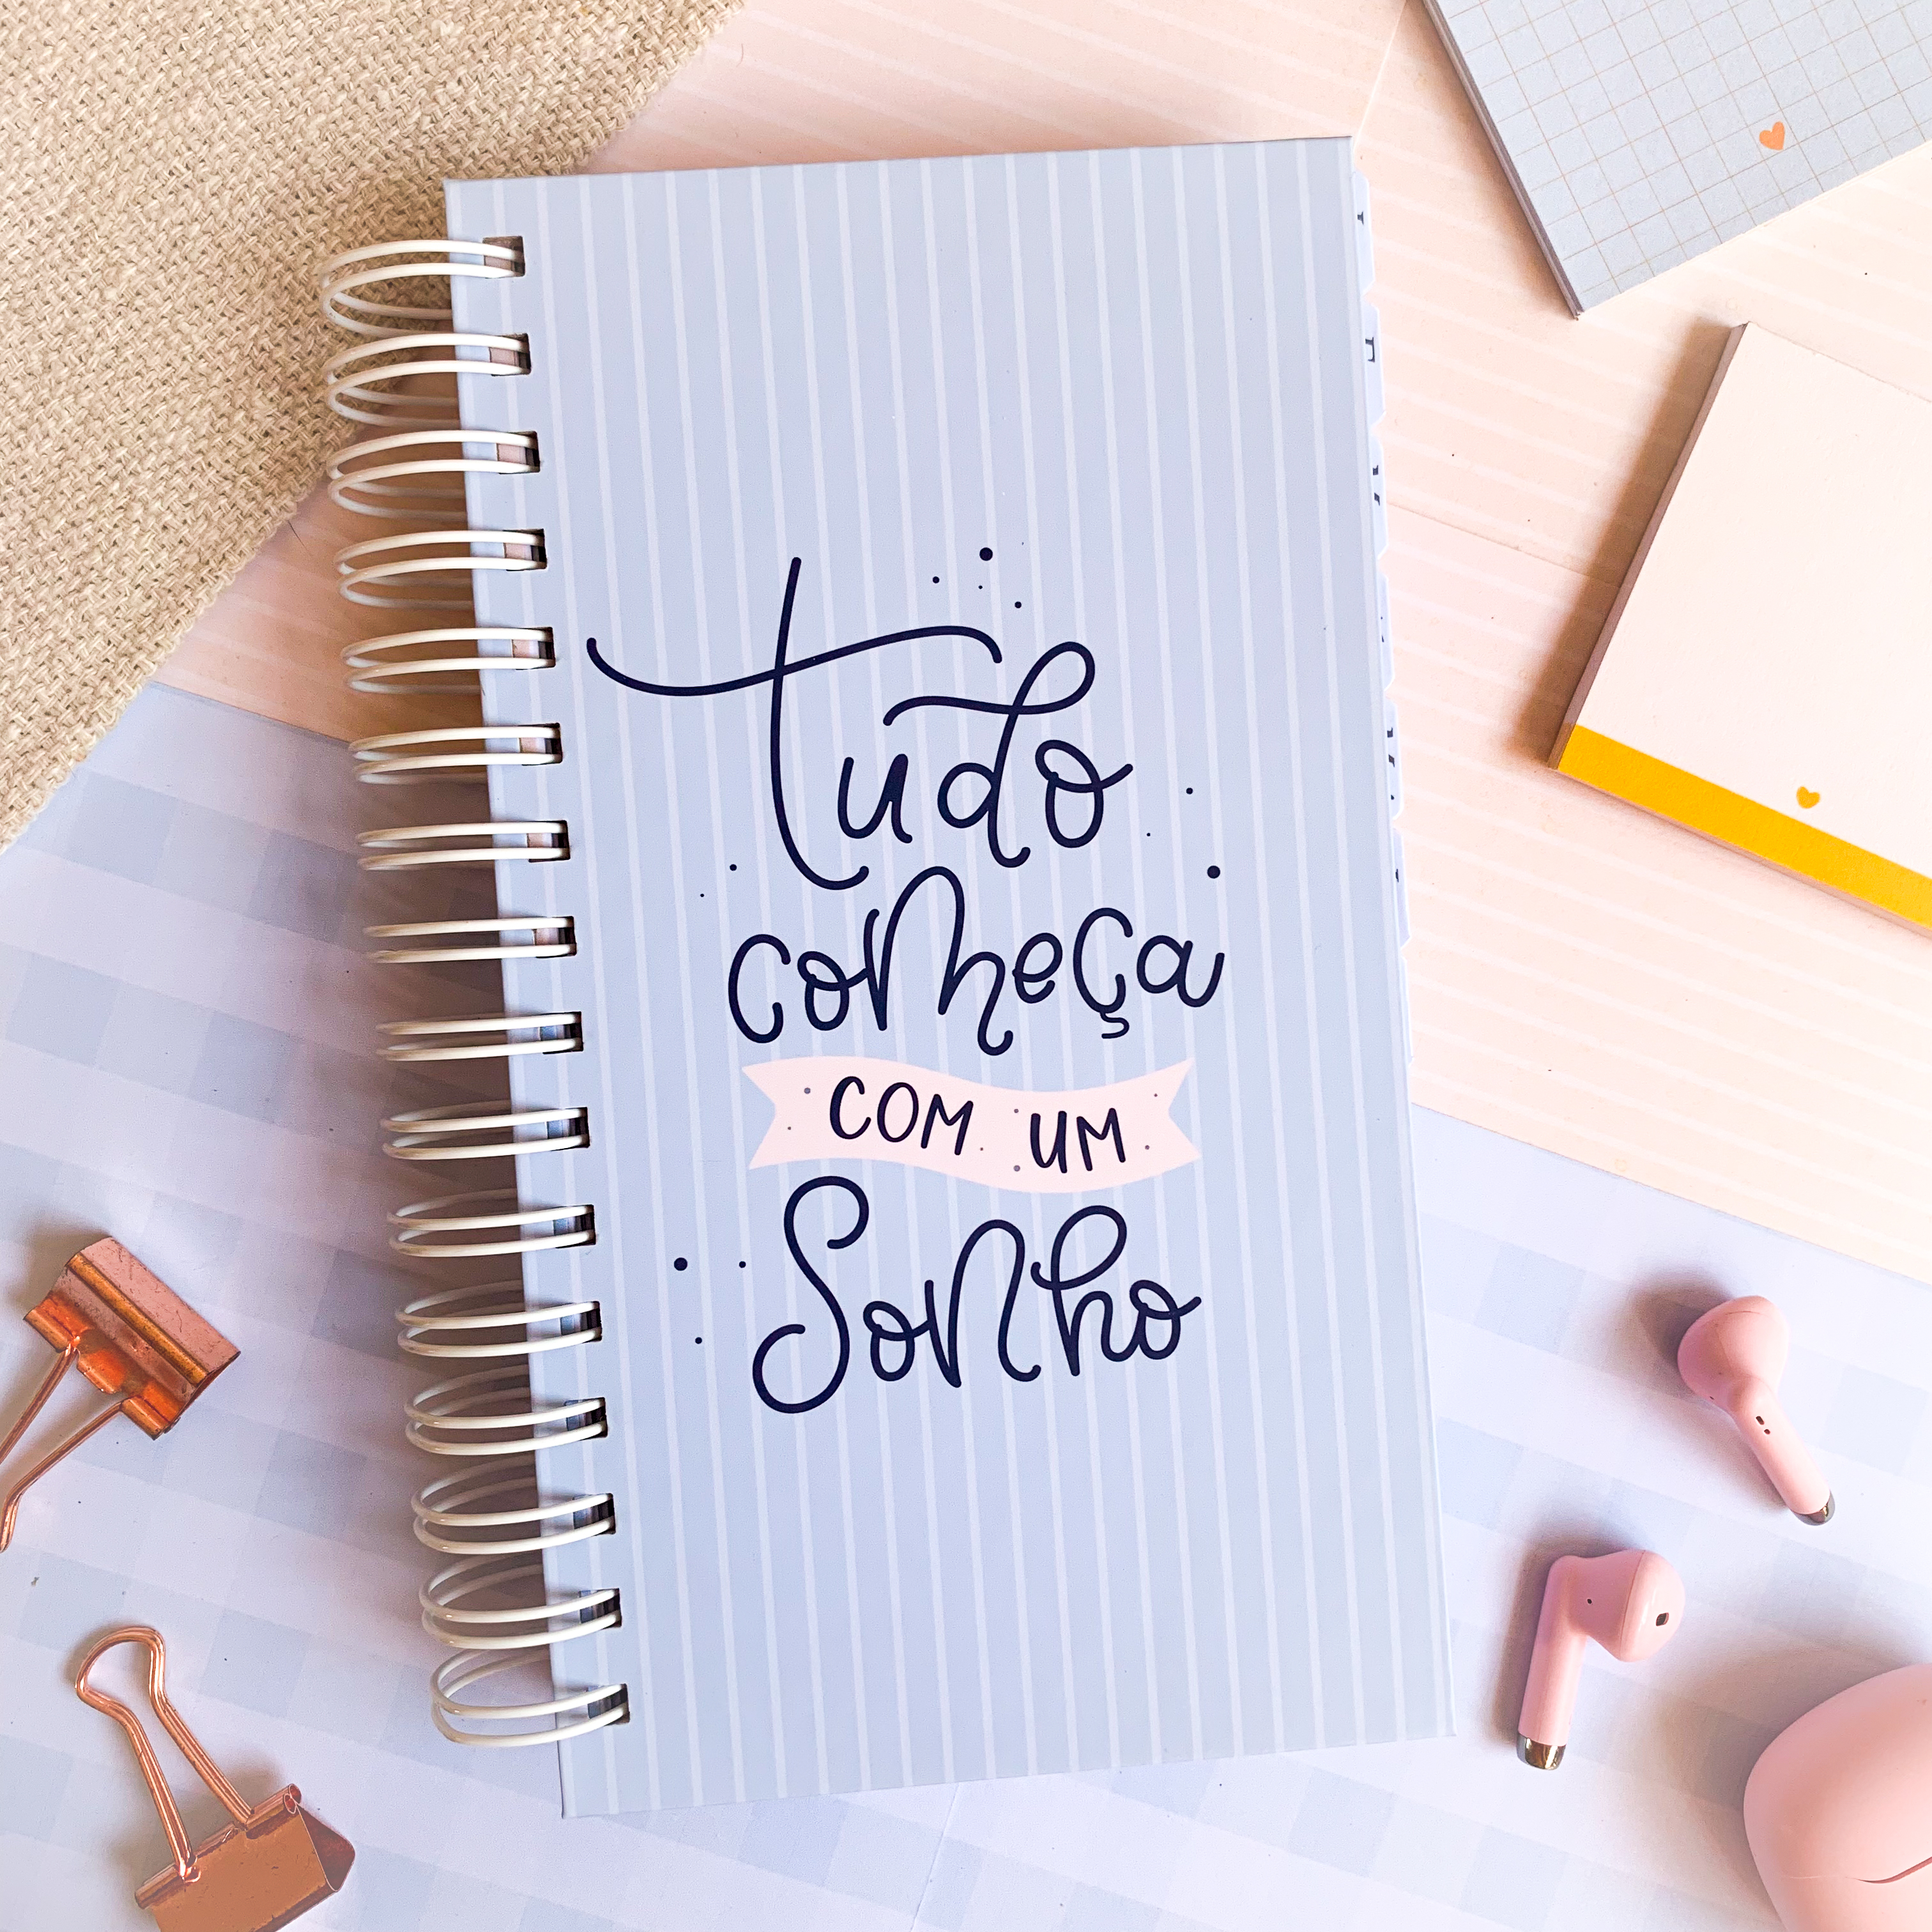 Tudo
começa
COM UM
Sonho